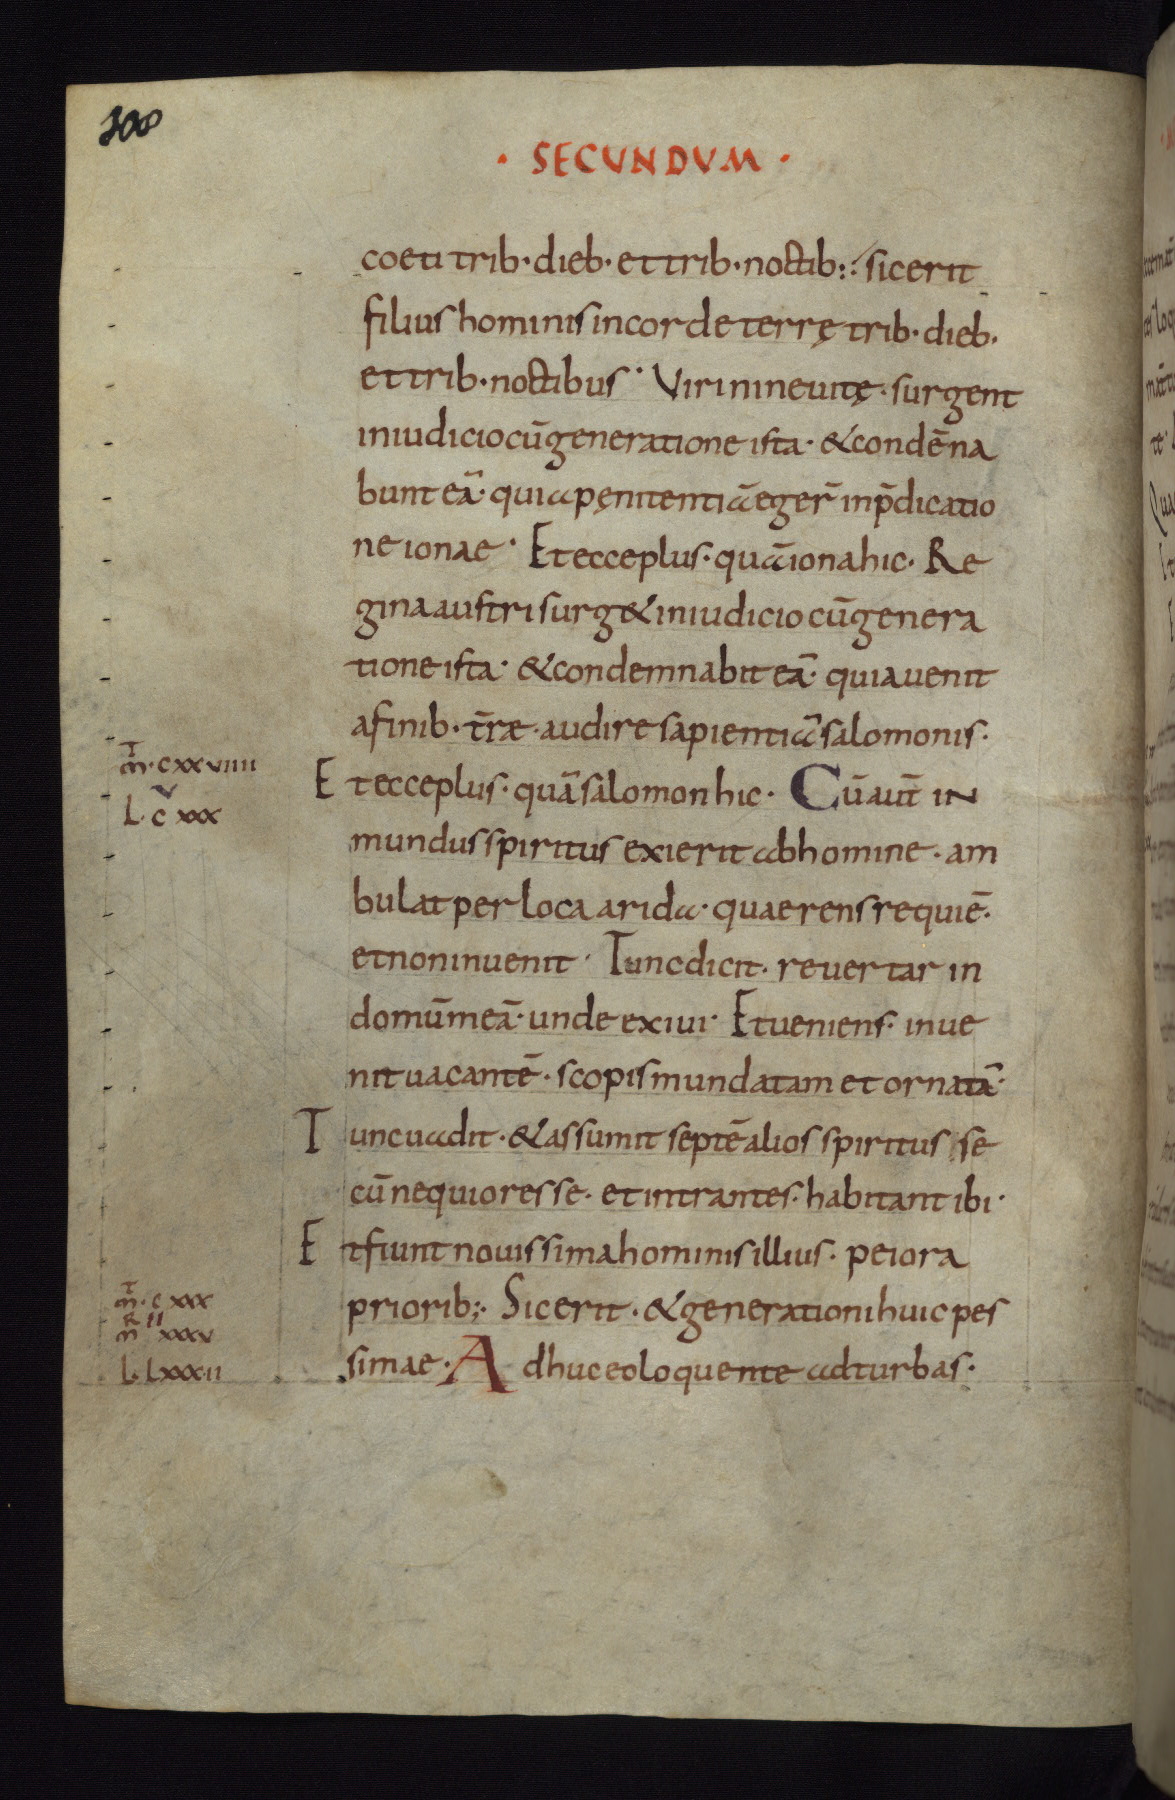 108
· SECUNDUM ·
coeti trib· dieb· et trib· noctib:· sic erit
filius hominis in corde terrę trib· dieb·
et trib· noctibus· Viri nineuitę· surgent
in iudicio cū generatione ista· & condēna
bunt eā· quia pęnitentiā eger̄ in p̄dicatio
ne ionae· Et ecce plus· quā iona hic· Re
gina austri surg& in iudicio cū genera
tione ista· & condemnabit eā· quia uenit
a finib· t̄rae· audire sapientiā salomonis·
m̄· cxxviiii
Et ecce plus· quā salomon hic· Cū aut̄ in
L· c̄ v xxx
mundus spiritus exierit ab homine· am
bulat per loca arida· quaerens requiē·
et non inuenit· Tunc dicit· reuertar in
domū meā· unde exiui· Et ueniens· inue
nit uacantē· scopis mundatam et ornatā·
Tunc uadit· & assumit septē alios spiritus sē
cū nequiores se· et intrantes· habitant ibi·
Et fiunt nouissima hominis illius· peiora
m̄· c xxx
priorib;· Sic erit· & generationi huic pes
R II
m̄ xxxv
simae· Adhuc eo loquente ad turbas·
L· Lxxxii